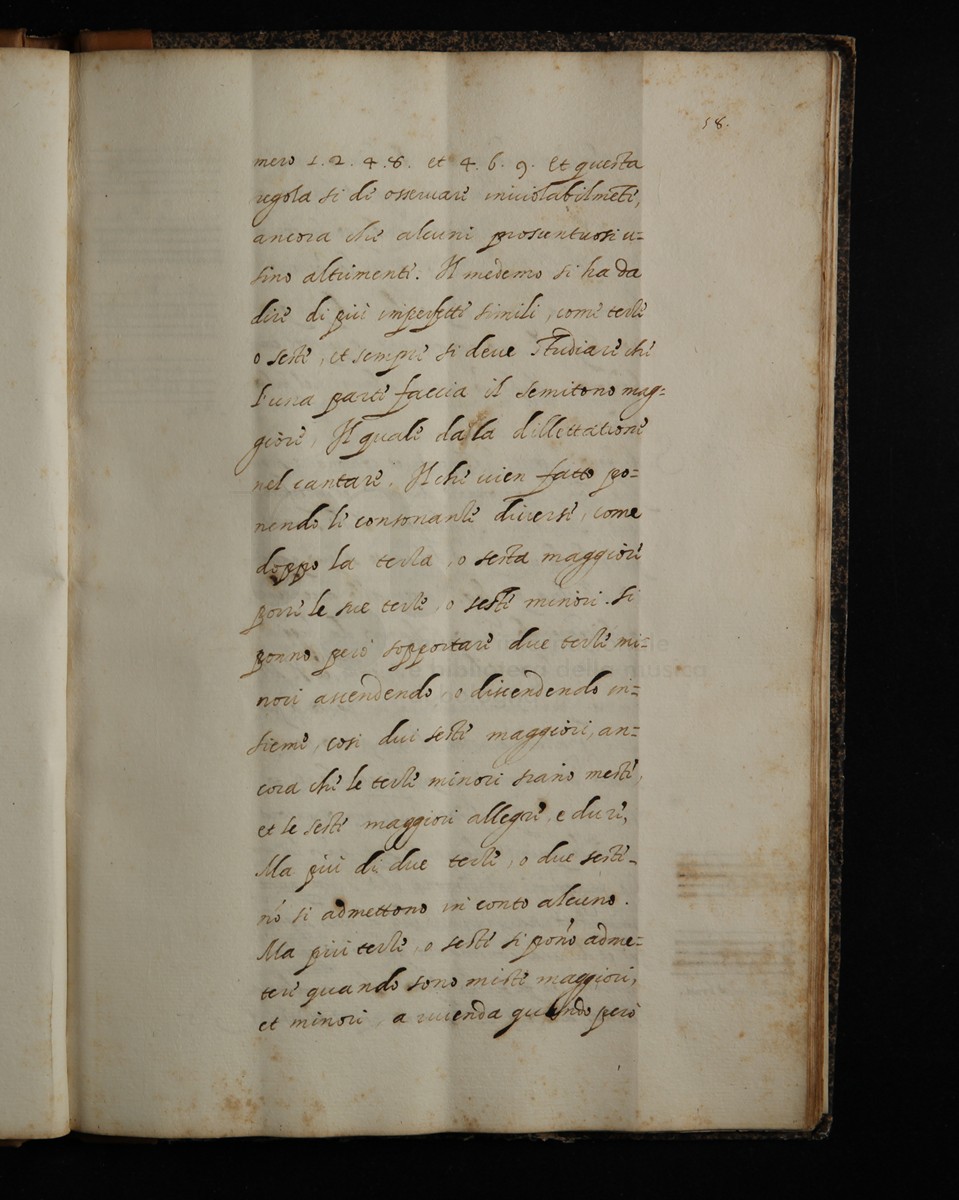 58.
mero 1. 2. 4. 8. et 4. 6. 9. Et questa
regola si dè osservare inviolabilmẽte,
ancora che alcuni prosuntuosi u=
sino altrimente. Il medemo si ha da
dire di più imperfette simili, come terze
o seste, et sempre si deve studiare che
l'una parte faccia il semitono mag=
giore, Il quale da la dillettatione
nel cantare. Il che vien fatto po=
nendo le consonanze diverse, come
doppo la terza, o sesta maggiore
porre le sue terze, o seste minori. Si
ponno però sopportare due terze mi=
nori ascendendo, o discendendo in=
sieme, cosi due seste maggiori, an=
cora che le terze minori siano meste,
et le seste maggiori allegre, e dure,
Ma più di due terze, o due seste
nõ si admettono in conto alcuno.
Ma più terze, o seste si ponõ adme=
tere quando sono miste maggiori,
et minori, a vicenda quando però
biblioteca della musica